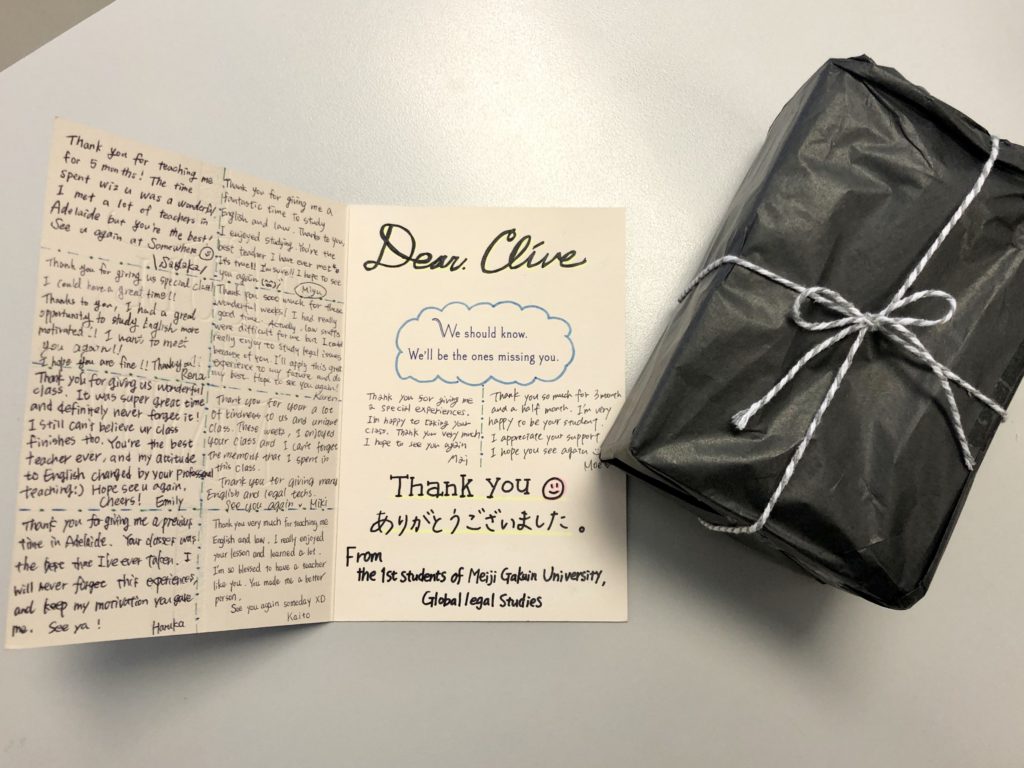 Thank you for teaching me
for 5 months! The time
spent wiz u was a wonderful
I met a lot of teachers in
Adelaide but you're the best!
See u again at Somewhere
Thank you for giving us special class!
I could have a great time!!
Thanks to you, I had a great
opportunity to study English more
motivated!! I want to meet
you again!!
I hope you are fine!! Thank you!!
Rena
Thank you for giving us wonderful
class. It was super great time
and definitely never forget it!
I still can't believe ur class
finishes tho. You're the best
teacher ever, and my attitude
to English changed by your professional
teaching:) Hope see u again.
Cheers! Emily
Thank you for giving me a precious
time in Adelaide. Your classes was
the best that I've ever taken. I
will never forget this experiences,
and keep my motivation you gave
me. See ya!
Haruka
Thank you for giving me a
fantastic time to study
English and law. Thanks to you,
I enjoyed studying. You're the
best teacher I have ever met.
Its true!! I'm sure!! I hope to see
you again
Miyu
Thank you sooo much for these
wonderful weeks! I had really
good time. Actually, law stuffs
were difficult for me but, I could
really enjoy to study legal issues
because of you. I'll apply this great
experience to my future and do
my best. Hope to see you again!
Karen
Thank you for your a lot
of kindness to us and unique
class. These weeks, I enjoyed
your class and I can't forget
the memory that I spent in
this class.
Thank you for giving many
English and legal techs.
See you again. Miki
Thank you very much for teaching me
English and law. I really enjoyed
your lesson and learned a lot.
I'm so blessed to have a teacher
like you. You made me a better
person.
See you again someday XD
Kaito
Dear. Clive
We should know.
We'll be the ones missing you.
Thank you for giving me
a special experiences.
I'm happy to taking your
class. Thank you very much
I hope to see you again
Mai
Thank you so much for 3 month
and a half month. I'm very
happy to be your student.
I appreciate your support
I hope you see again
Moe
Thank you
ありがとうございました。
From
the 1st students of Meiji Gakuin University,
Global legal Studies